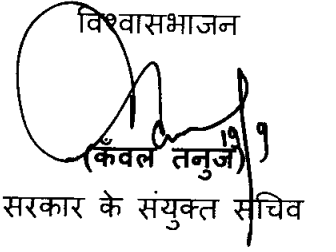 विश्वासभाजन
19/9
(कँवल तनुज)
सरकार के संयुक्त सचिव